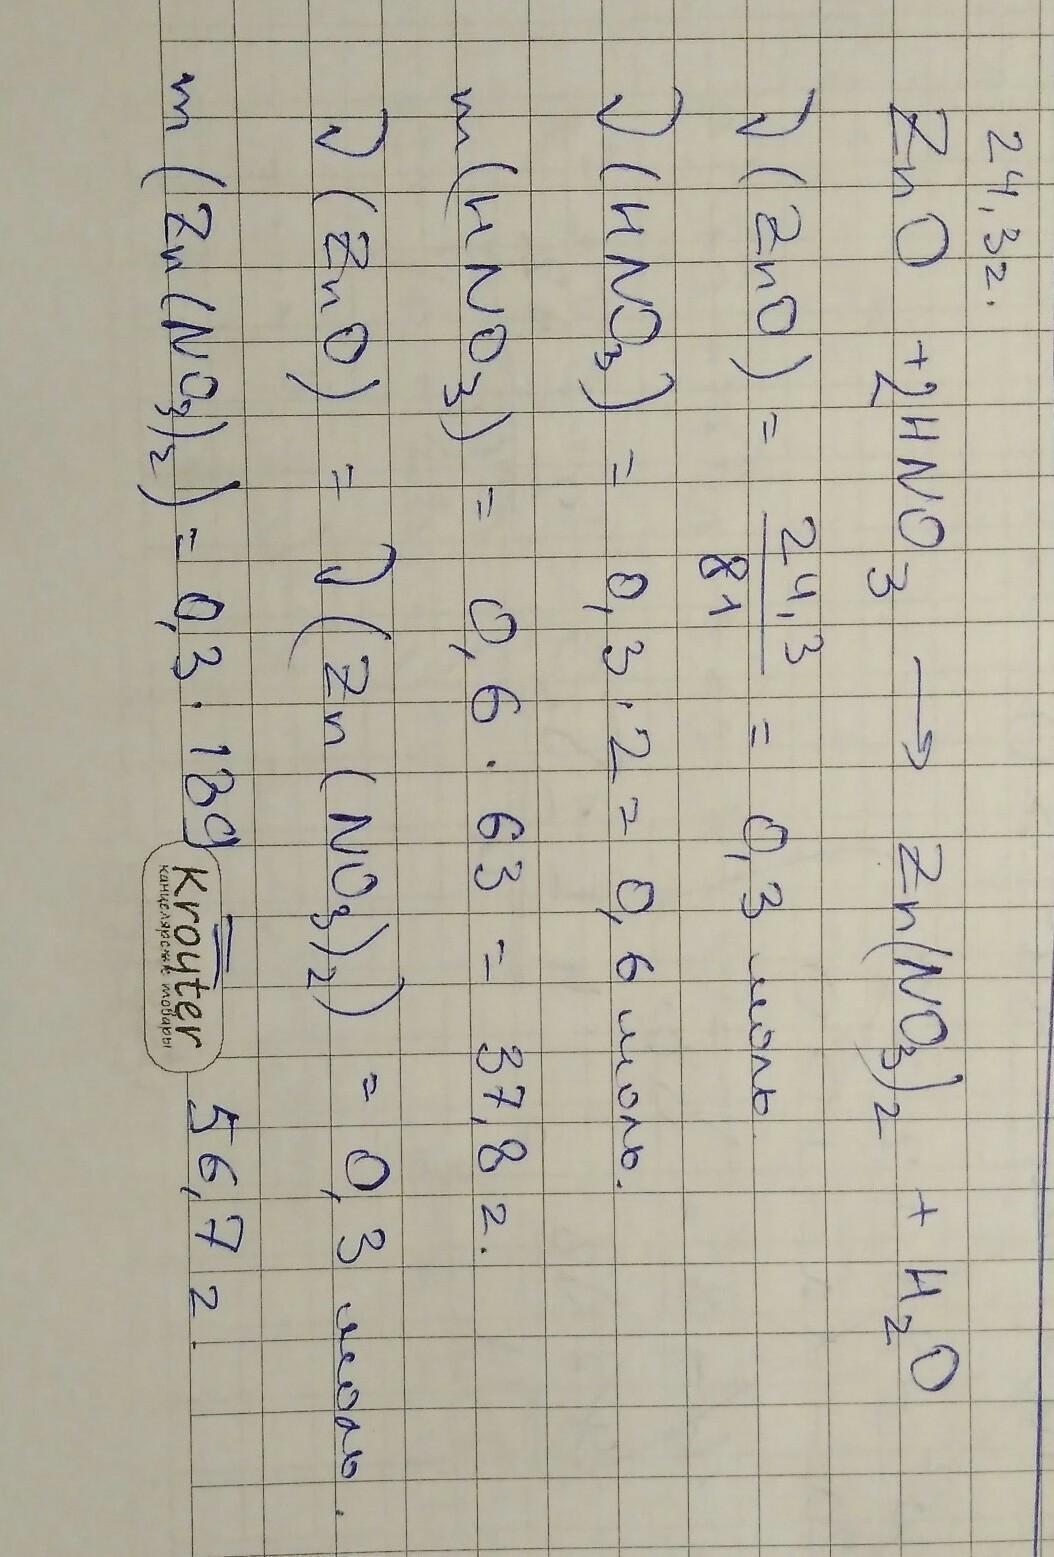 24,3г.
ZnO + 2HNO3 → Zn(NO3)2 + H2O
ν(ZnO) = 24,3/81 = 0,3 моль
ν(HNO3) = 0,3·2 = 0,6 моль.
m(HNO3) = 0,6 · 63 = 37,8 г.
ν(ZnO) = ν(Zn(NO3)2) = 0,3 моль.
m(Zn(NO3)2) = 0,3 · 189 = 56,7 г.
Krouter
канцелярские товары